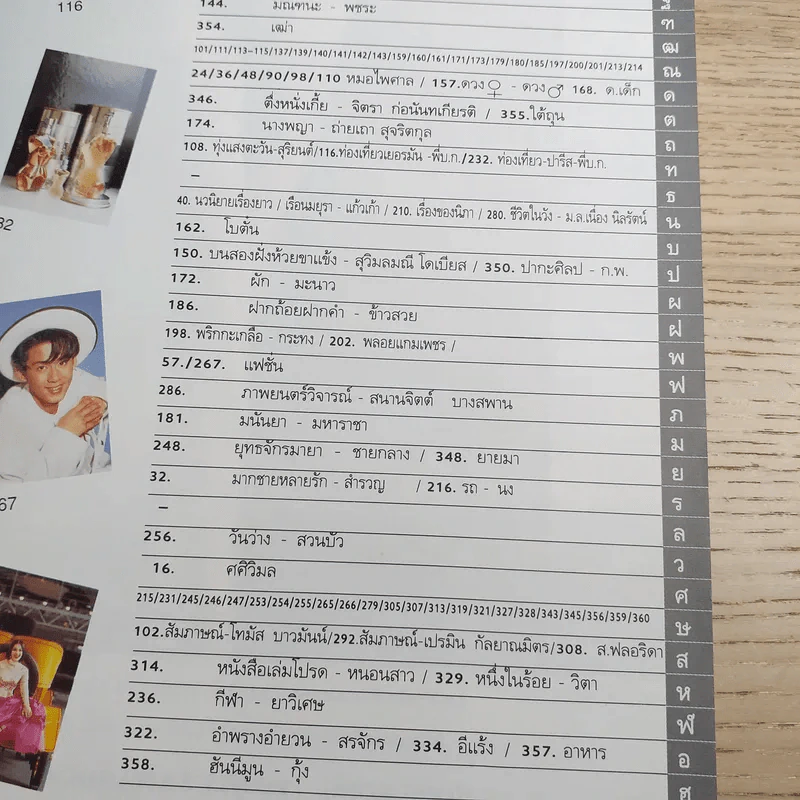 116
144. มัณฑนะ - พชระ
354. เฒ่า
ฑ
ฒ
101/111/113-115/137/139/140/141/142/143/159/160/161/171/173/179/180/185/197/200/201/213/214
ณ
24/36/48/90/98/110 หมอไพศาล / 157.ดวง♀ - ดวง♂ 168. ด.เด็ก
ด
346. ตี๋งหนั่งเกี้ย - จิตรา ก่อนันทเกียรติ / 355.ใต้ถุน
ต
174. นางพญา - ถ่ายเถา สุจริตกุล
ถ
108. ทุ่งแสงตะวัน-สุริยนต์/116.ท่องเที่ยวเยอรมัน -พี่บ.ก./232. ท่องเที่ยว-ปารีส-พี่บ.ก.
ท
–
ธ
40. นวนิยายเรื่องยาว / เรือนมยุรา - แก้วเก้า / 210. เรื่องของนิภา / 280. ชีวิตในวัง - ม.ล.เนื่อง นิลรัตน์
น
162. โบตั๋น
บ
150. บนสองฝั่งห้วยขาแข้ง - สุวิมลมณี โดเบียส / 350. ปากะศิลป - ก.พ.
ป
172. ผัก - มะนาว
ผ
186. ฝากถ้อยฝากคำ - ข้าวสวย
ฝ
198. พริกกะเกลือ - กระทง / 202. พลอยแกมเพชร /
พ
57./267. แฟชั่น
ฟ
286. ภาพยนตร์วิจารณ์ - สนานจิตต์ บางสพาน
ภ
181. มนันยา - มหาราชา
ม
248. ยุทธจักรมายา - ชายกลาง / 348. ยายมา
ย
32. มากชายหลายรัก - สำรวญ / 216. รถ - นง
ร
–
ล
256. วันว่าง - สวนบัว
ว
16. ศศิวิมล
ศ
215/231/245/246/247/253/254/255/265/266/279/305/307/313/319/321/327/328/343/345/356/359/360
ษ
102.สัมภาษณ์-โทมัส บาวมันน์/292.สัมภาษณ์-เปรมิน กัลยาณมิตร/308. ส.ฟลอริดา
ส
314. หนังสือเล่มโปรด - หนอนสาว / 329. หนึ่งในร้อย - วิตา
ห
236. กีฬา - ยาวิเศษ
ฬ
322. อำพรางอำยวน - สรจักร / 334. อีแร้ง / 357. อาหาร
อ
358. ฮันนีมูน - กุ้ง
ฮ